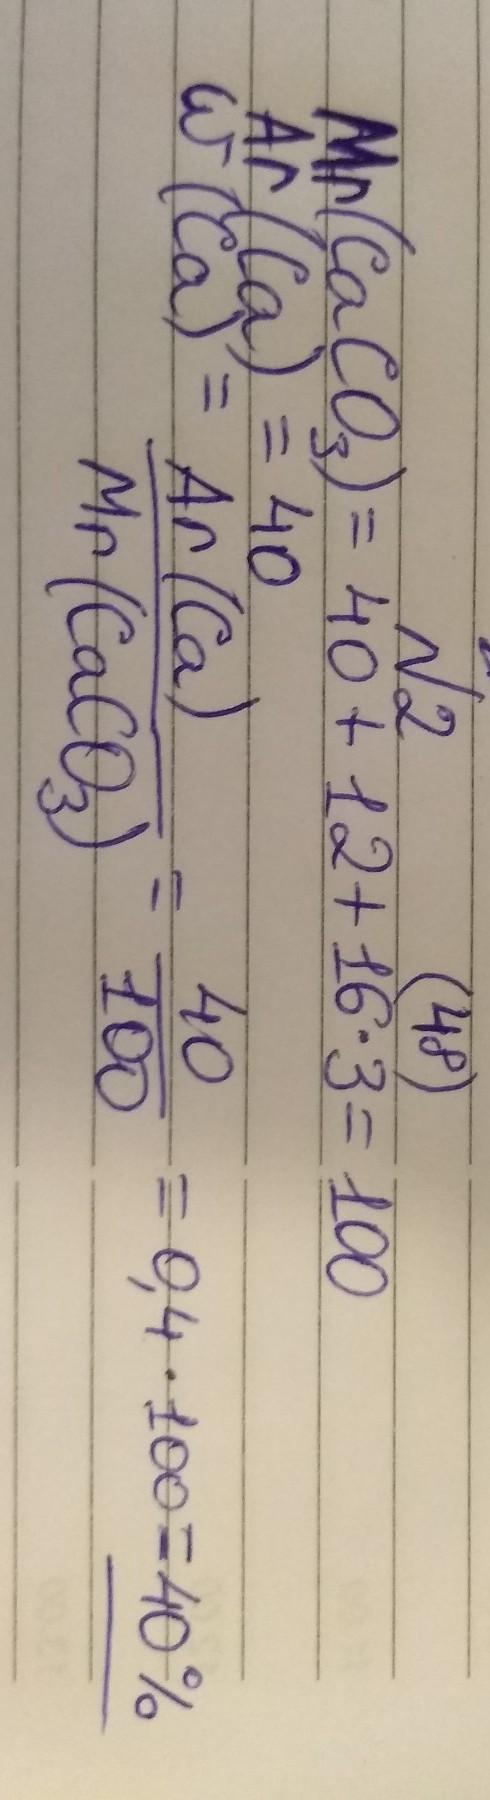 №2
(48)
Mr(CaCO₃) = 40 + 12 + 16·3 = 100
Ar(Ca) = 40
ω(Ca) = Ar(Ca) / Mr(CaCO₃) = 40 / 100 = 0,4 · 100 = 40%